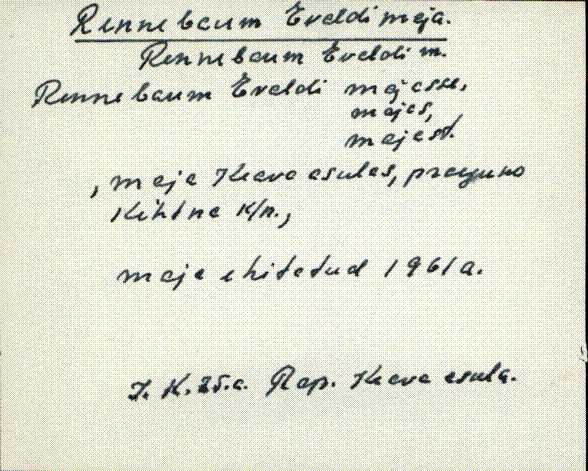 Rennebaum Eveldi maja.
Rennebaum Eveldi m.
Rennebaum Eveldi majasse,
majas,
majast.
, maja Keava asulas, praegune
Kihtna k/n.,
maja ehitatud 1961 a.
I. K. 25. a. Rap. Keava asula.